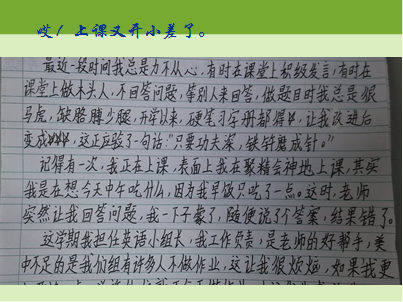 哎！上课又开小差了。
最近一段时间我总是力不从心，有时在课堂上积极发言，有时在
课堂上做木头人，不回答问题，等别人来回答，做题目时我总是很
马虎，缺胳膊少腿，开学以来，硬笔习字册都得，让我改进后
变成，这正应验了一句话：“只要功夫深，铁杵磨成针。”
记得有一次，我正在上课，表面上我在聚精会神地上课，其实
我是在想今天中午吃什么，因为我早饭只吃了一点。这时，老师
突然让我回答问题，我一下子蒙了，随便说了个答案，结果错了。
这学期我担任英语小组长，我工作负责，是老师的好帮手，美
中不足的是我们组有许多人不做作业，这让我很烦恼，如果我更